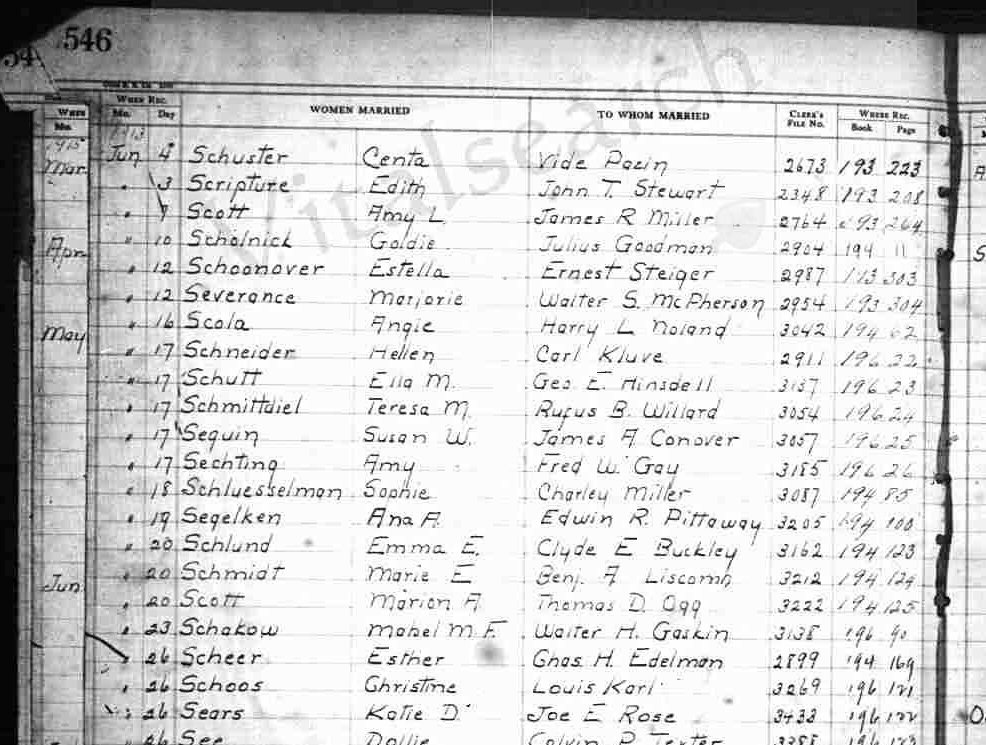 546
WHEN REC. WOMEN MARRIED TO WHOM MARRIED CLERK'S FILE NO. WHERE REC.
Mo. Day Book Page
1913
Jun 4 Schuster Centa Vide Pacin 2673 193 223
" 3 Scripture Edith John T. Stewart 2348 193 208
" 7 Scott Amy L. James R Miller 2764 193 264
" 10 Scholnick Goldie Julius Goodman 2904 194 11
" 12 Schoonover Estella Ernest Steiger 2987 193 303
" 12 Severance Marjorie Walter S. McPherson 2954 193 304
" 16 Scola Angie Harry L Noland 3042 194 62
" 17 Schneider Hellen Carl Kluve 2911 196 22
" 17 Schutt Ella M. Geo. E. Hinsdell 3137 196 23
" 17 Schmittdiel Teresa M. Rufus B. Willard 3054 196 24
" 17 Sequin Susan W. James A Conover 3057 196 25
" 17 Sechting Amy Fred W. Gay 3185 196 26
" 18 Schluesselman Sophie Charley Miller 3087 194 85
" 19 Segelken Ana A. Edwin R. Pittaway 3205 194 100
" 20 Schlund Emma E. Clyde E Buckley 3162 194 123
" 20 Schmidt Marie E Benj. A Liscomb 3212 194 124
" 20 Scott Marion A. Thomas D. Ogg 3222 194 125
" 23 Schakow Mabel M. F. Walter H. Gaskin 3138 196 90
" 26 Scheer Esther Chas. H. Edelman 2899 194 169
" 26 Schoos Christine Louis Karl 3269 196 121
" 26 Sears Katie D. Joe E Rose 3433 196 122
26 See Dollie Calvin P. Texter 196 123
WHEN
Mo.
Mar.
Apr.
May
Jun
Vitalsearch